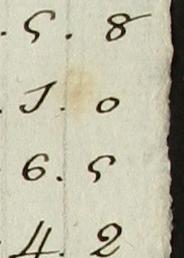 . 5 . 8
. 1 . 0
6 . 5
4 . 2